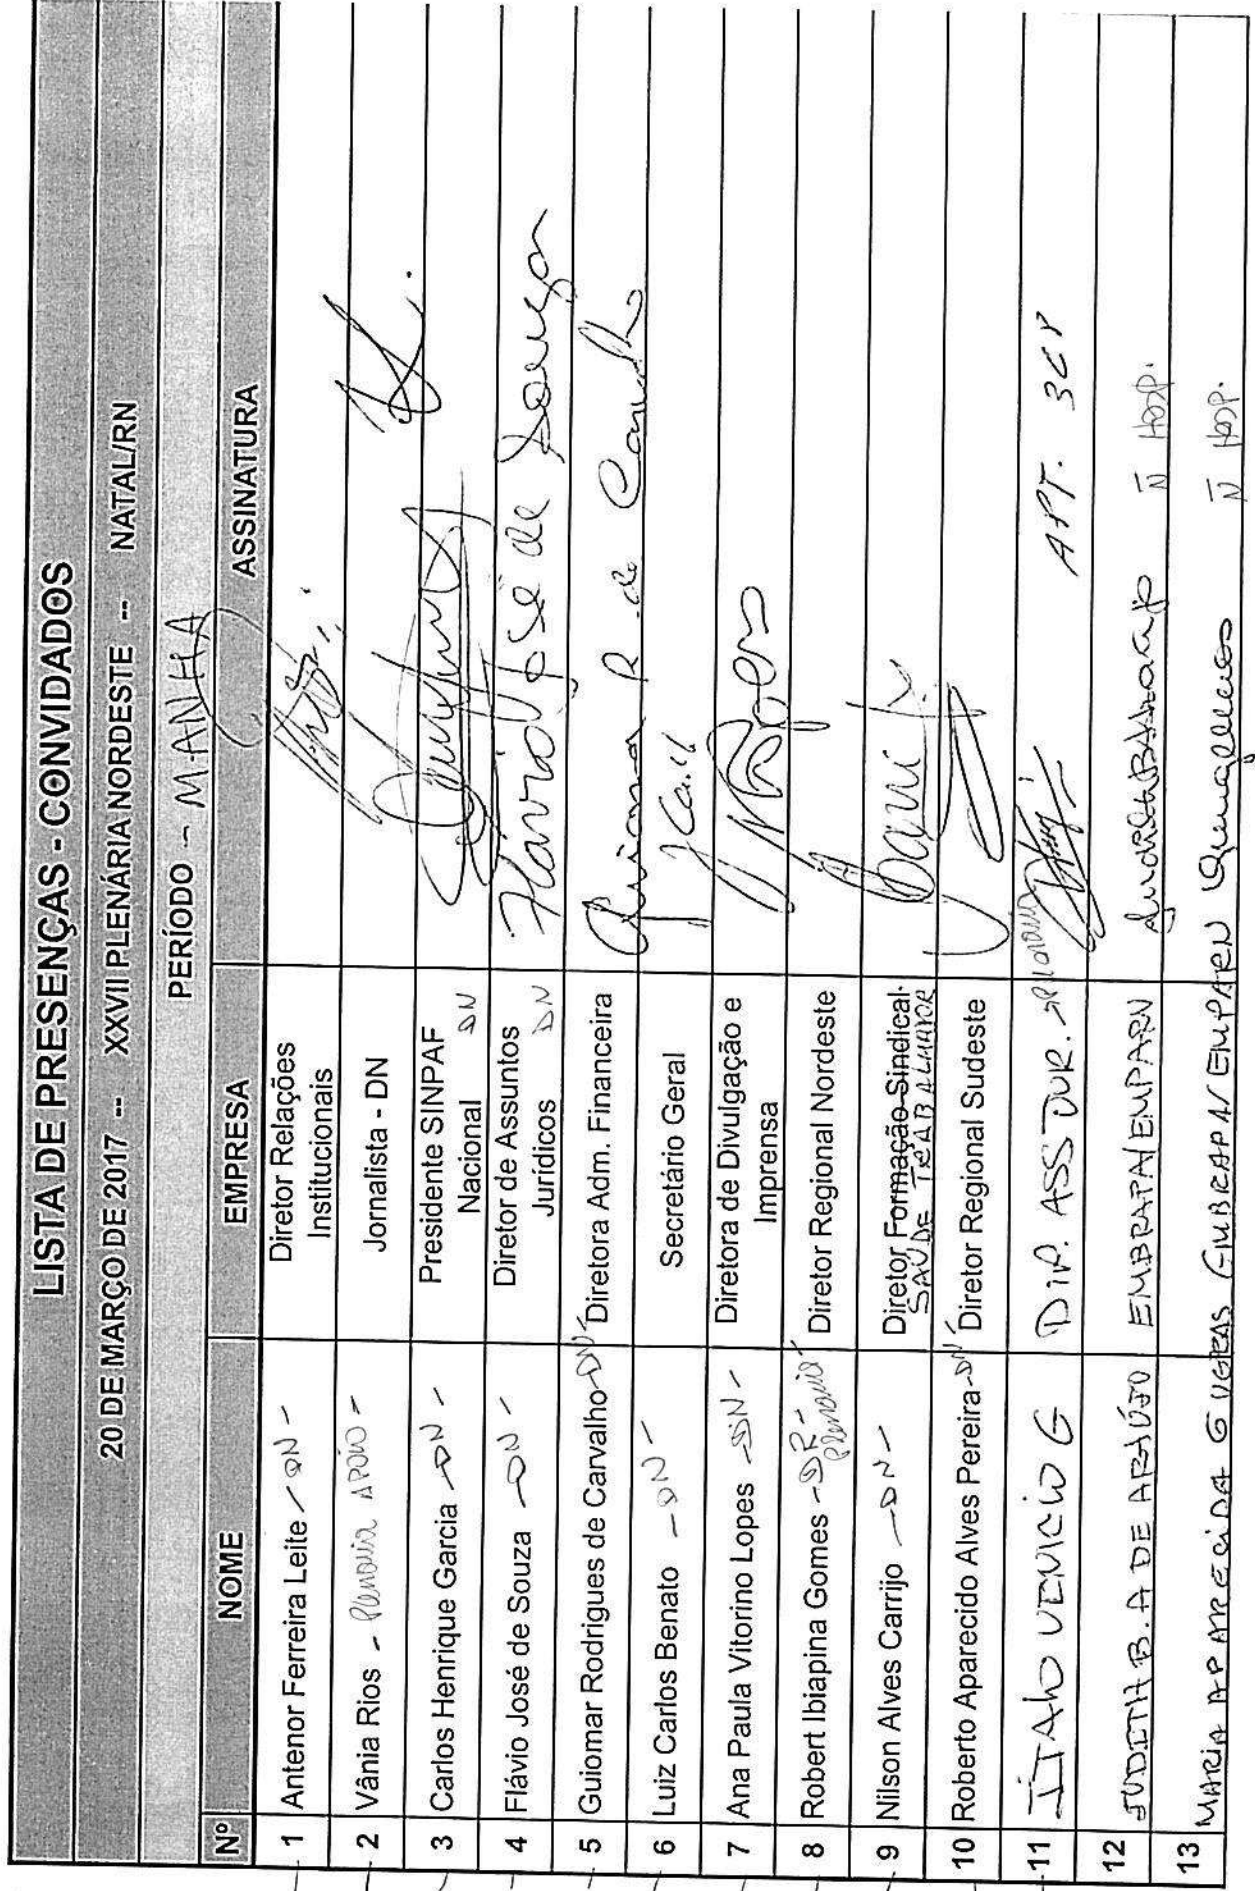 LISTA DE PRESENÇAS - CONVIDADOS
20 DE MARÇO DE 2017 -- XXVII PLENÁRIA NORDESTE -- NATAL/RN
PERÍODO - MANHÃ
Nº NOME EMPRESA ASSINATURA
1 Antenor Ferreira Leite - DN - Diretor Relações
Institucionais
2 Vânia Rios - Plenaria APOIO - Jornalista - DN
3 Carlos Henrique Garcia - DN - Presidente SINPAF
Nacional DN
4 Flávio José de Souza - DN - Diretor de Assuntos Flávio José de Souza
Jurídicos DN
5 Guiomar Rodrigues de Carvalho - DN - Diretora Adm. Financeira Guiomar R. de Carvalho
6 Luiz Carlos Benato - DN - Secretário Geral
7 Ana Paula Vitorino Lopes - DN - Diretora de Divulgação e
Imprensa
8 Robert Ibiapina Gomes - DR - Diretor Regional Nordeste
Plenaria
9 Nilson Alves Carrijo - DN - Diretor Formação Sindical
SAÚDE TRABALHADOR
10 Roberto Aparecido Alves Pereira - DN - Diretor Regional Sudeste
11 ÍTALO VENICIO G DIR. ASS JUR. APT. 301
12 JUDITH B. A DE ARAÚJO EMBRAPA/EMPARN N HOSP.
13 MARIA APARECIDA G VERAS EMBRAPA/EMPARN N HOSP.